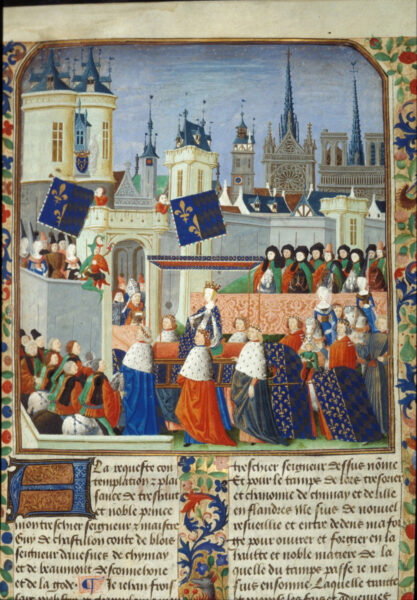 A la requeste con
templation & plai
sance de treshau
et noble prince
mon treschier seigneur & maistre
Guy de chastillon conte de blois
seigneur davesnes de chymay
et de beaumont de sconnehone
et de la gode. ¶ Je Jehan frois
treschier seigneur dessus nōme
Et pour le tamps de lors tresorier
et chanonne de chimay et de lille
en flandres me suis de nouvel
resveillie et entre dedens ma for
ge pour ouvrer et forgier en la
haulte et noble matiere de la
quelle du tamps passe je me
suis ensonnie. Laquelle traicte